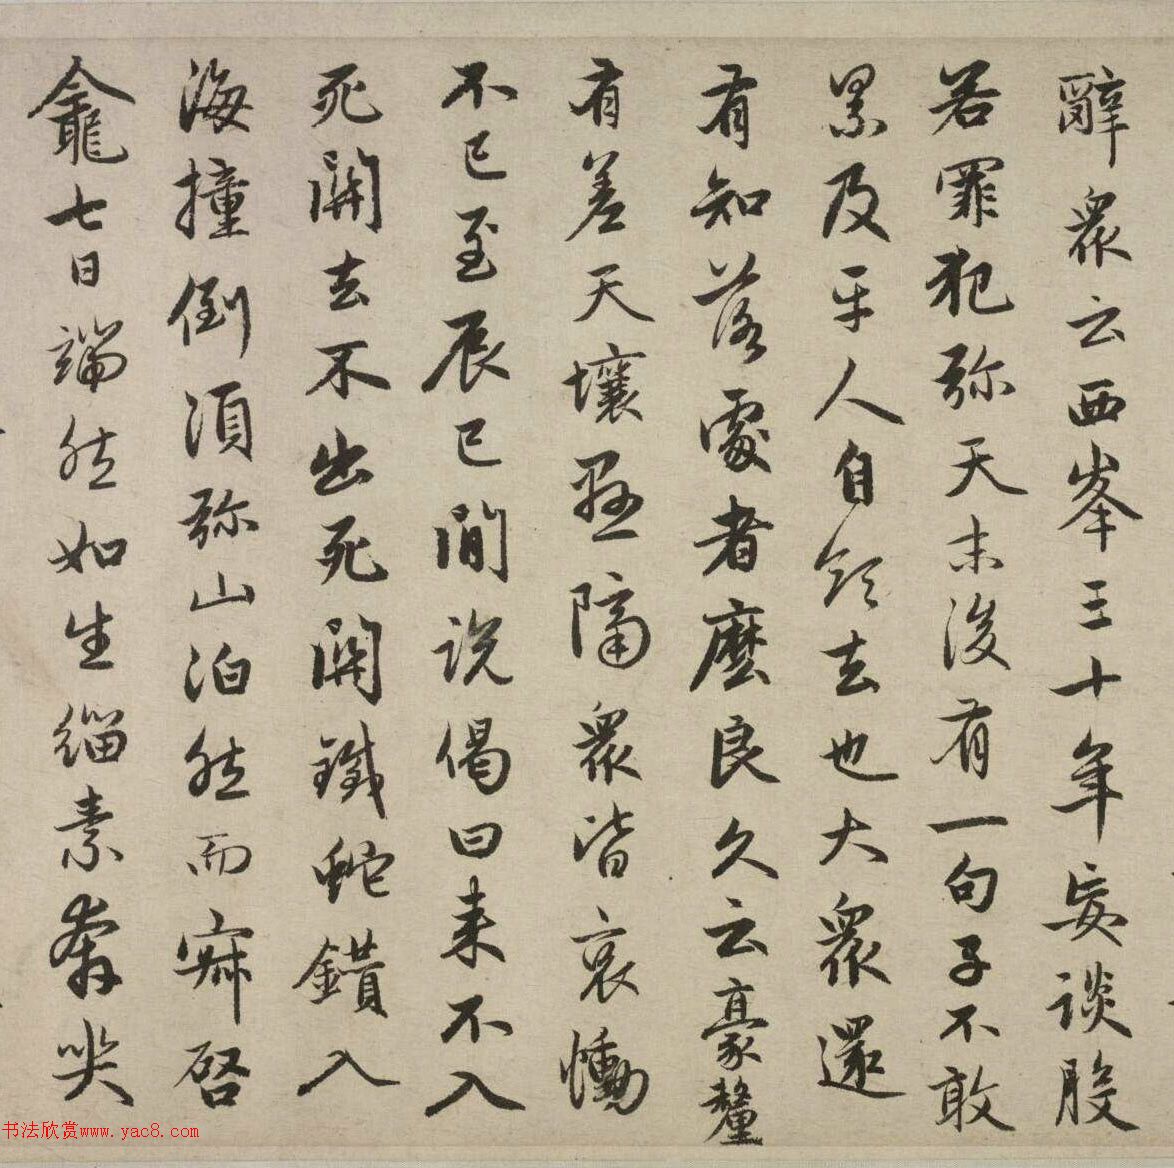 辭眾云西峯三十年妄談般
若罪犯弥天末後有一句子不敢
累及平人自領去也大眾還
有知落處者麼良久云豪釐
有差天壤懸隔眾皆哀慟
不已至辰巳間說偈曰來不入
死關去不出死關鐵蛇鑽入
海撞倒須弥山泊然而寂啓
龕七日端然如生緇素奔哭
书法欣赏www.yac8.com